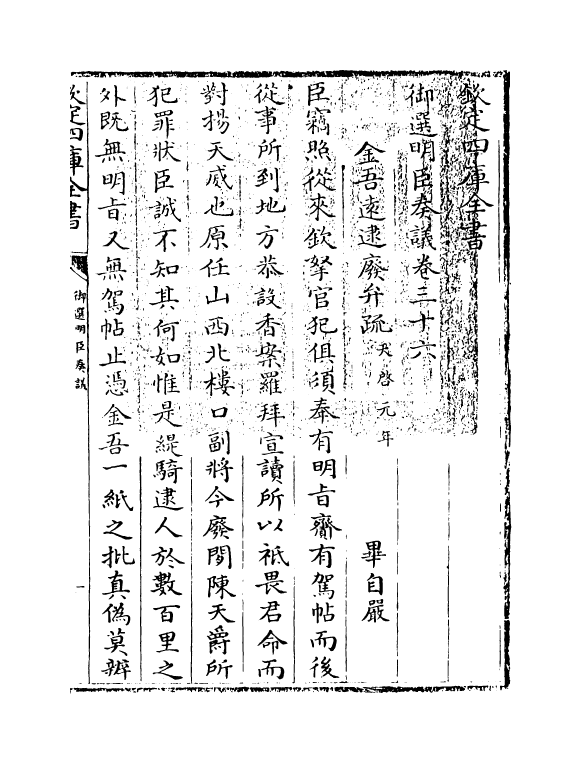 欽定四庫全書
御選明臣奏議卷三十六
金吾遠逮廢弁疏天啓元年 畢自嚴
臣竊照從來欽拏官犯俱須奉有明旨齎有駕帖而後
從事所到地方恭設香案羅拜宣讀所以祗畏君命而
對揚天威也原任山西北樓口副將今廢閒陳天爵所
犯罪狀臣誠不知其何如惟是緹騎逮人於數百里之
外既無明旨又無駕帖止憑金吾一紙之批真偽莫辨
欽定四庫全書
御選明臣奏議
一